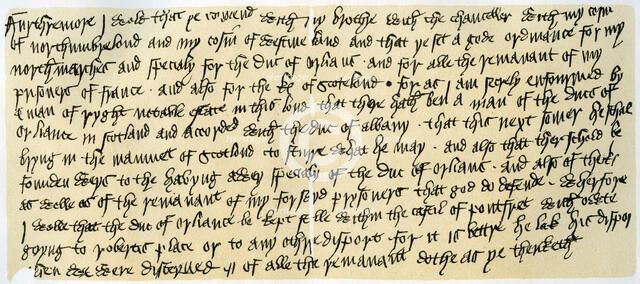 Furthremore I wold that ye comend with my brothre with the chanceller with my cosin
of northumbrelond and my cosin of westmerland and that ye set a gode ordinance for my
north marches and specialy for the duc of orlians . and for alle the remanant of my
prisoners of france . and also for the K of scotelond . for as I am secrely enfourmed by
a man of ryght notable estate in this lond that there hath ben a man of the ducs of
orliance in scotland and accorded with the duc of albany . that this next somer he schal
bryng in the mamuet of scotland to sturre what he may . and also that ther schold be
founden weys to the havyng awey specialy of the duc of orlians . and also of the K
as welle as of the remanant of my forsayd prisoners that god do defende . wherfore
I wolle that the duc of orliance be kept stille withyn the castil of pontfret with owte
goyng to robertis place or to any othre disport for it is bettre he lak his disport
then we were disceyved of alle the remanant dothe as ye thenketh